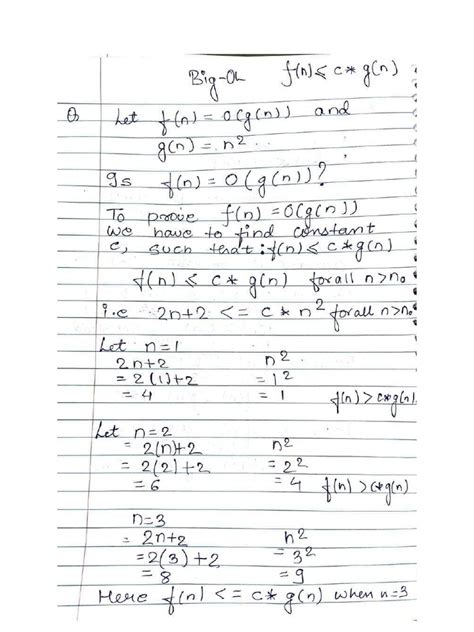 Big-Oh f(n) ≤ c * g(n)
Q Let f(n) = O(g(n)) and
g(n) = n²..
Is f(n) = O(g(n))?
To prove f(n) = O(g(n))
we have to find constant
c, such that : f(n) ≤ c * g(n)
f(n) ≤ c * g(n) for all n>n₀
i.e 2n+2 <= c * n² for all n>n₀
Let n=1
2n+2 n²
= 2(1)+2 = 1²
= 4 = 1 f(n) > c*g(n).
Let n=2
= 2(n)+2 n²
= 2(2)+2 = 2²
= 6 = 4 f(n) > c*g(n)
n=3
= 2n+2 n²
= 2(3)+2 = 3²
= 8 = 9
Here f(n) <= c* g(n) when n=3